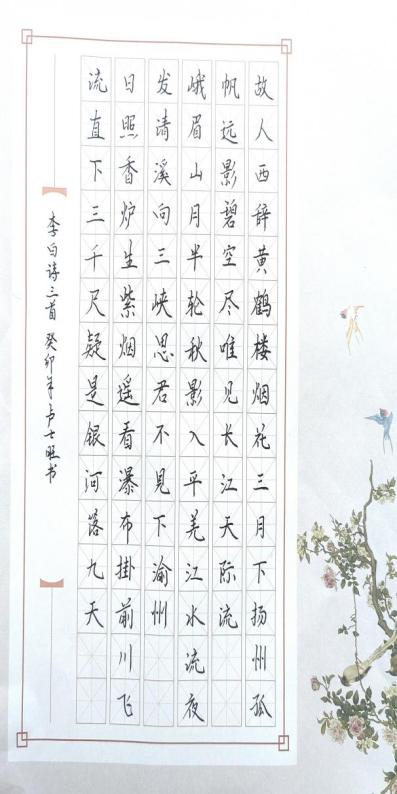 故人西辞黄鹤楼烟花三月下扬州孤
帆远影碧空尽唯见长江天际流
峨眉山月半轮秋影入平羌江水流夜
发清溪向三峡思君不见下渝州
日照香炉生紫烟遥看瀑布掛前川飞
流直下三千尺疑是银河落九天
李白诗三首癸卯年卢士旺书